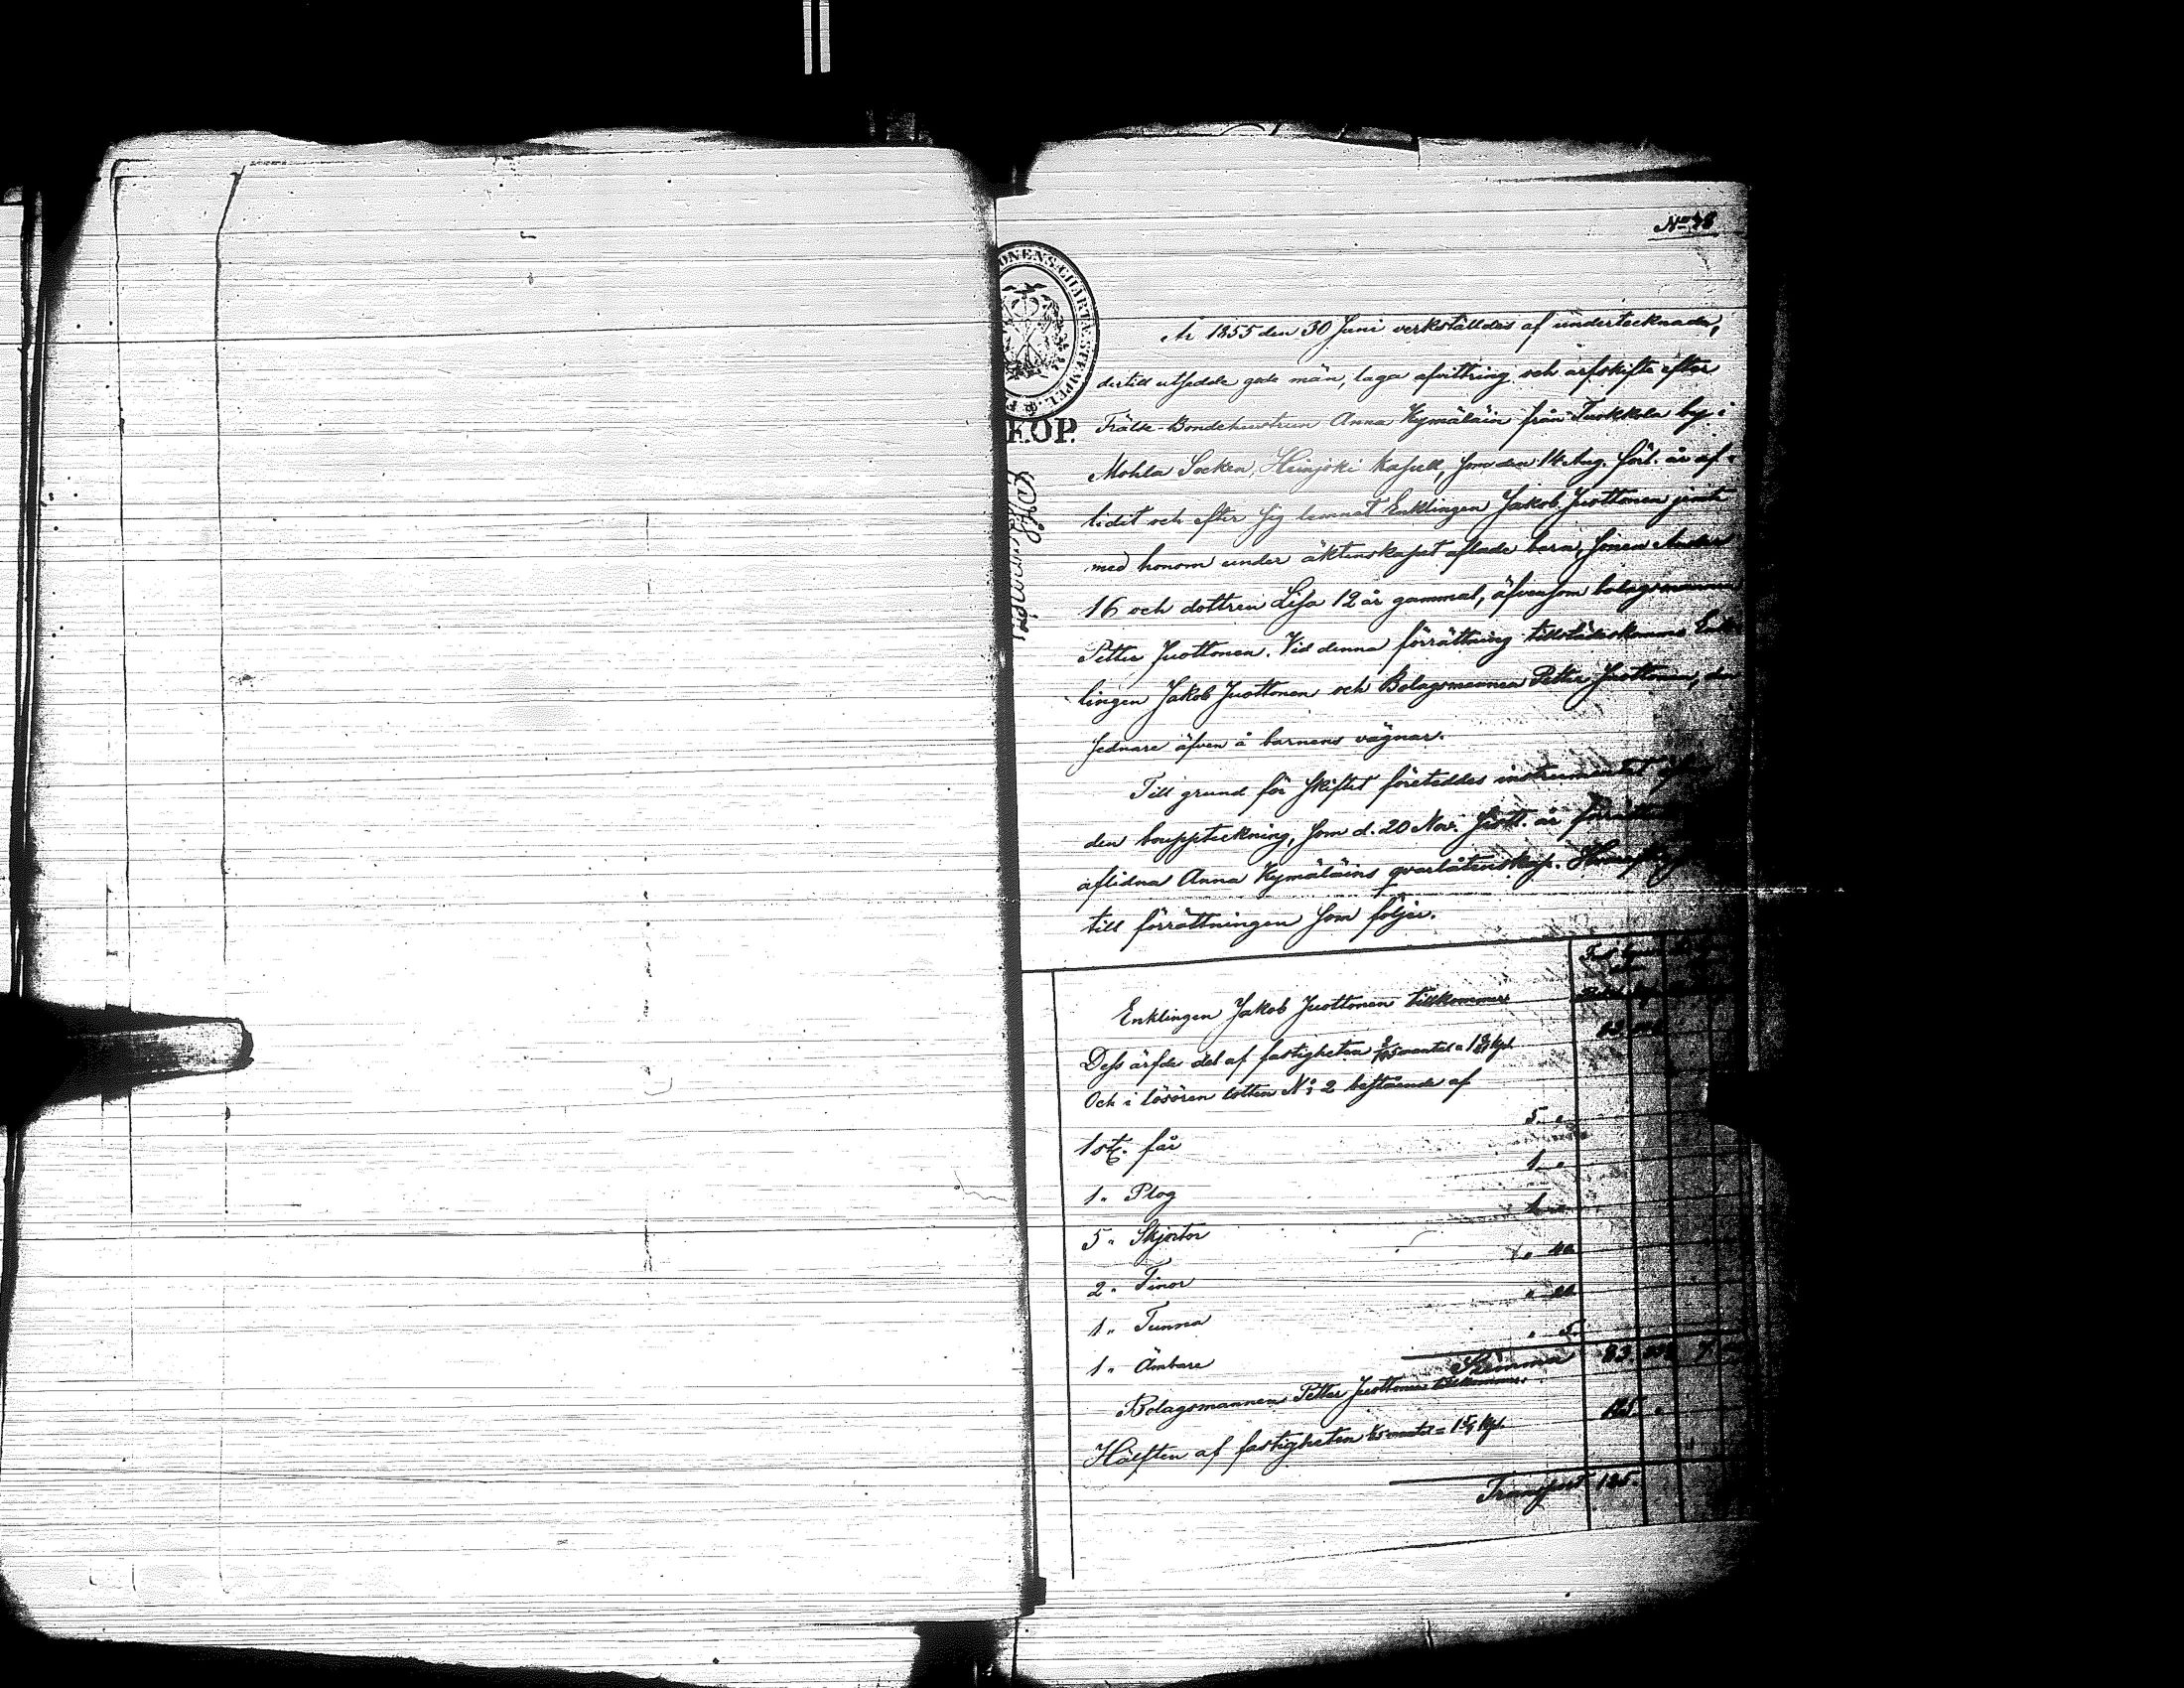 No 48
ONENS CHARTÆ STEMPEL
KOP.
År 1855 den 30 Juni verkställdes af undertecknade,
dertill utsedde gode män, laga afvittring och arfskifte efter
Frälse-Bondehustrun Anna Kymäläin från Tuokkola by i
Mohla Socken, Heinjoki Kapell, som den 14 Aug. förl. år af-
lidit och efter sig lemnat Enklingen Jakob Juottonen jemte
med honom under äktenskapet aflade barn, sonen Anders
16 och dottren Lisa 12 år gammal, äfvensom bolagsmannen
Petter Juottonen. Vid denna förrättning tillstädeskommo Enk-
lingen Jakob Juottonen och Bolagsmannen Petter Juottonen, den
sednare äfven å barnens vägnar.
Till grund för skiftet företeddes instrumentet öfver
den bouppteckning, som d. 20 Nov. förl. år
aflidna Anna Kymäläins qvarlåtenskap.
till förrättningen som följer.
Enklingen Jakob Juottonen tillkommer
Dess ärfda del af fastigheten
Och i lösören lotten No 2 bestående af
1 st. får 5
1 " Plog 1
5 " Skjortor 1
2 " Tinor
1 " Tunna
1 " Ämbare 5
Summa 83 7
Bolagsmannen Petter Juottonen tillkommer
Hälften af fastigheten 125
Transport 125.